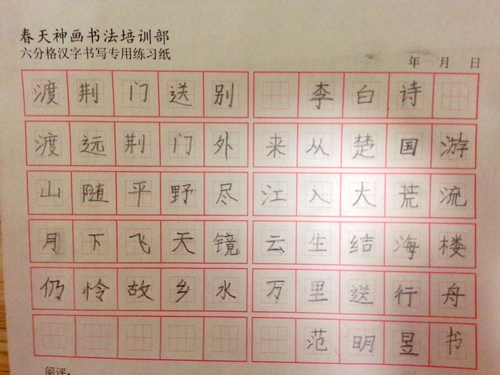 春天神画书法培训部
六分格汉字书写专用练习纸
年 月 日
渡荆门送别 李白诗
渡远荆门外 来从楚国游
山随平野尽 江入大荒流
月下飞天镜 云生结海楼
仍怜故乡水 万里送行舟
范明昱书
阅评：